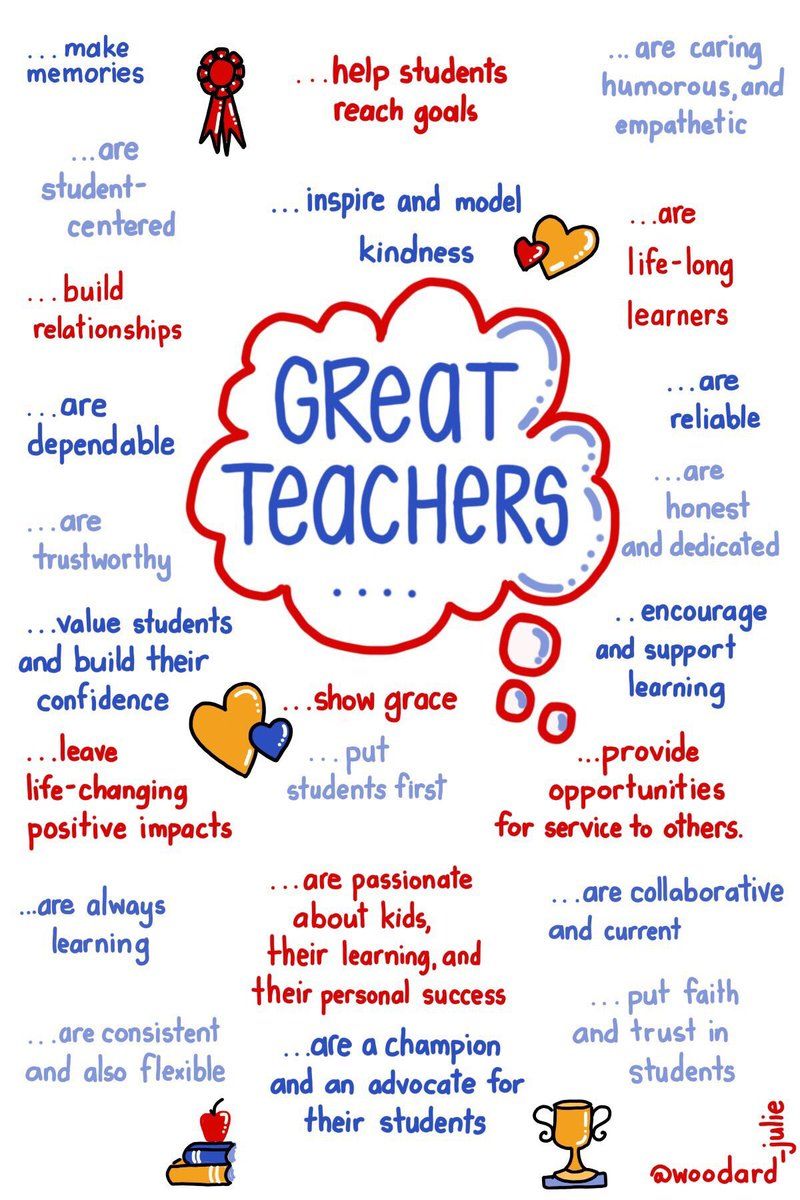 ...make
memories
...help students
reach goals
... are caring
humorous, and
empathetic
...are
student-
centered
...inspire and model
kindness
...are
life-long
learners
...build
relationships
GReaT
TeacHeRS
....
...are
dependable
...are
reliable
...are
trustworthy
...are
honest
and dedicated
...value students
and build their
confidence
..encourage
and support
learning
...show grace
...leave
life-changing
positive impacts
...put
students first
...provide
opportunities
for service to others.
...are always
learning
...are passionate
about kids,
their learning, and
their personal success
...are collaborative
and current
...are consistent
and also flexible
...are a champion
and an advocate for
their students
... put faith
and trust in
students
@woodard_julie